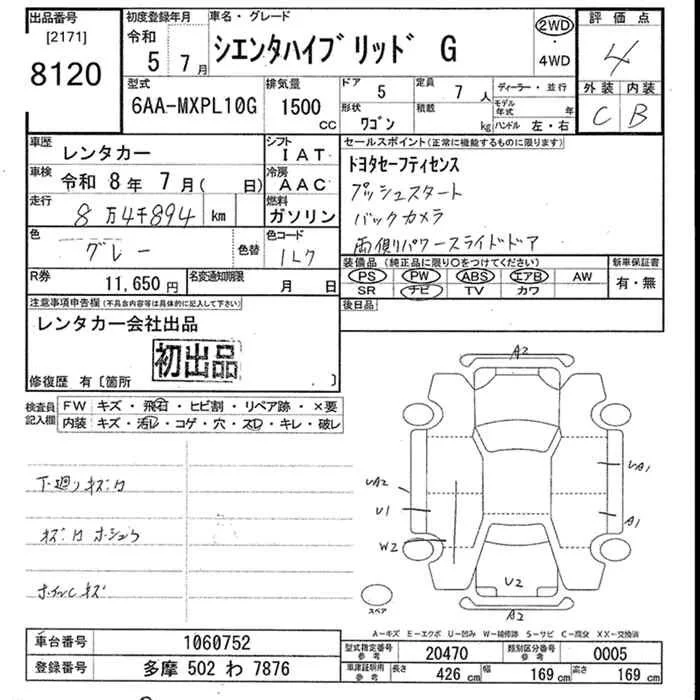 出品番号 [2171] 8120
初度登録年月 令和 5 7月
車名・グレード シエンタハイブリッド G
2WD ・ 4WD
評価点 4
外装 内装 C B
型式 6AA-MXPL10G
排気量 1500 CC
ドア 5 定員 7 人
形状 ワゴン 積載 kg
ディーラー・並行
モデル年式 年
ハンドル 左・右
車歴 レンタカー
シフト IAT
車検 令和 8年 7月( 日)
冷房 AAC
走行 8万4千894 km
燃料 ガソリン
色 グレー 色替
色コード 1L7
R券 11,650円
名変通知期限 月 日
セールスポイント(正常に機能するものに限ります)
トヨタセーフティセンス
プッシュスタート
バックカメラ
両側パワースライドドア
装備品(純正品に限り○をつけてください)
PS PW ABS エアB AW
SR ナビ TV カワ
新車保証書 有・無
後日品
注意事項申告欄(不具合内容等は具体的に記入して下さい)
レンタカー会社出品
初出品
修復歴 有〔箇所 〕
検査員記入欄
FW キズ・飛石・ヒビ割・リペア跡・×要
内装 キズ・汚レ・コゲ・穴・スレ・キレ・破レ
下廻りキズサ
キズサホシュウ
ホイルCキズ
A2
UA2
U1
W2
UA1
A1
U2
A2
スペア
A−キズ E−エクボ U−凹み W−補修跡 S−サビ C−腐食 XX−交換済
車台番号 1060752
登録番号 多摩 502 わ 7876
型式指定番号 参考 20470
類別区分番号 参考 0005
車庫証明用 参考 長さ 426 cm 幅 169 cm 高さ 169 cm